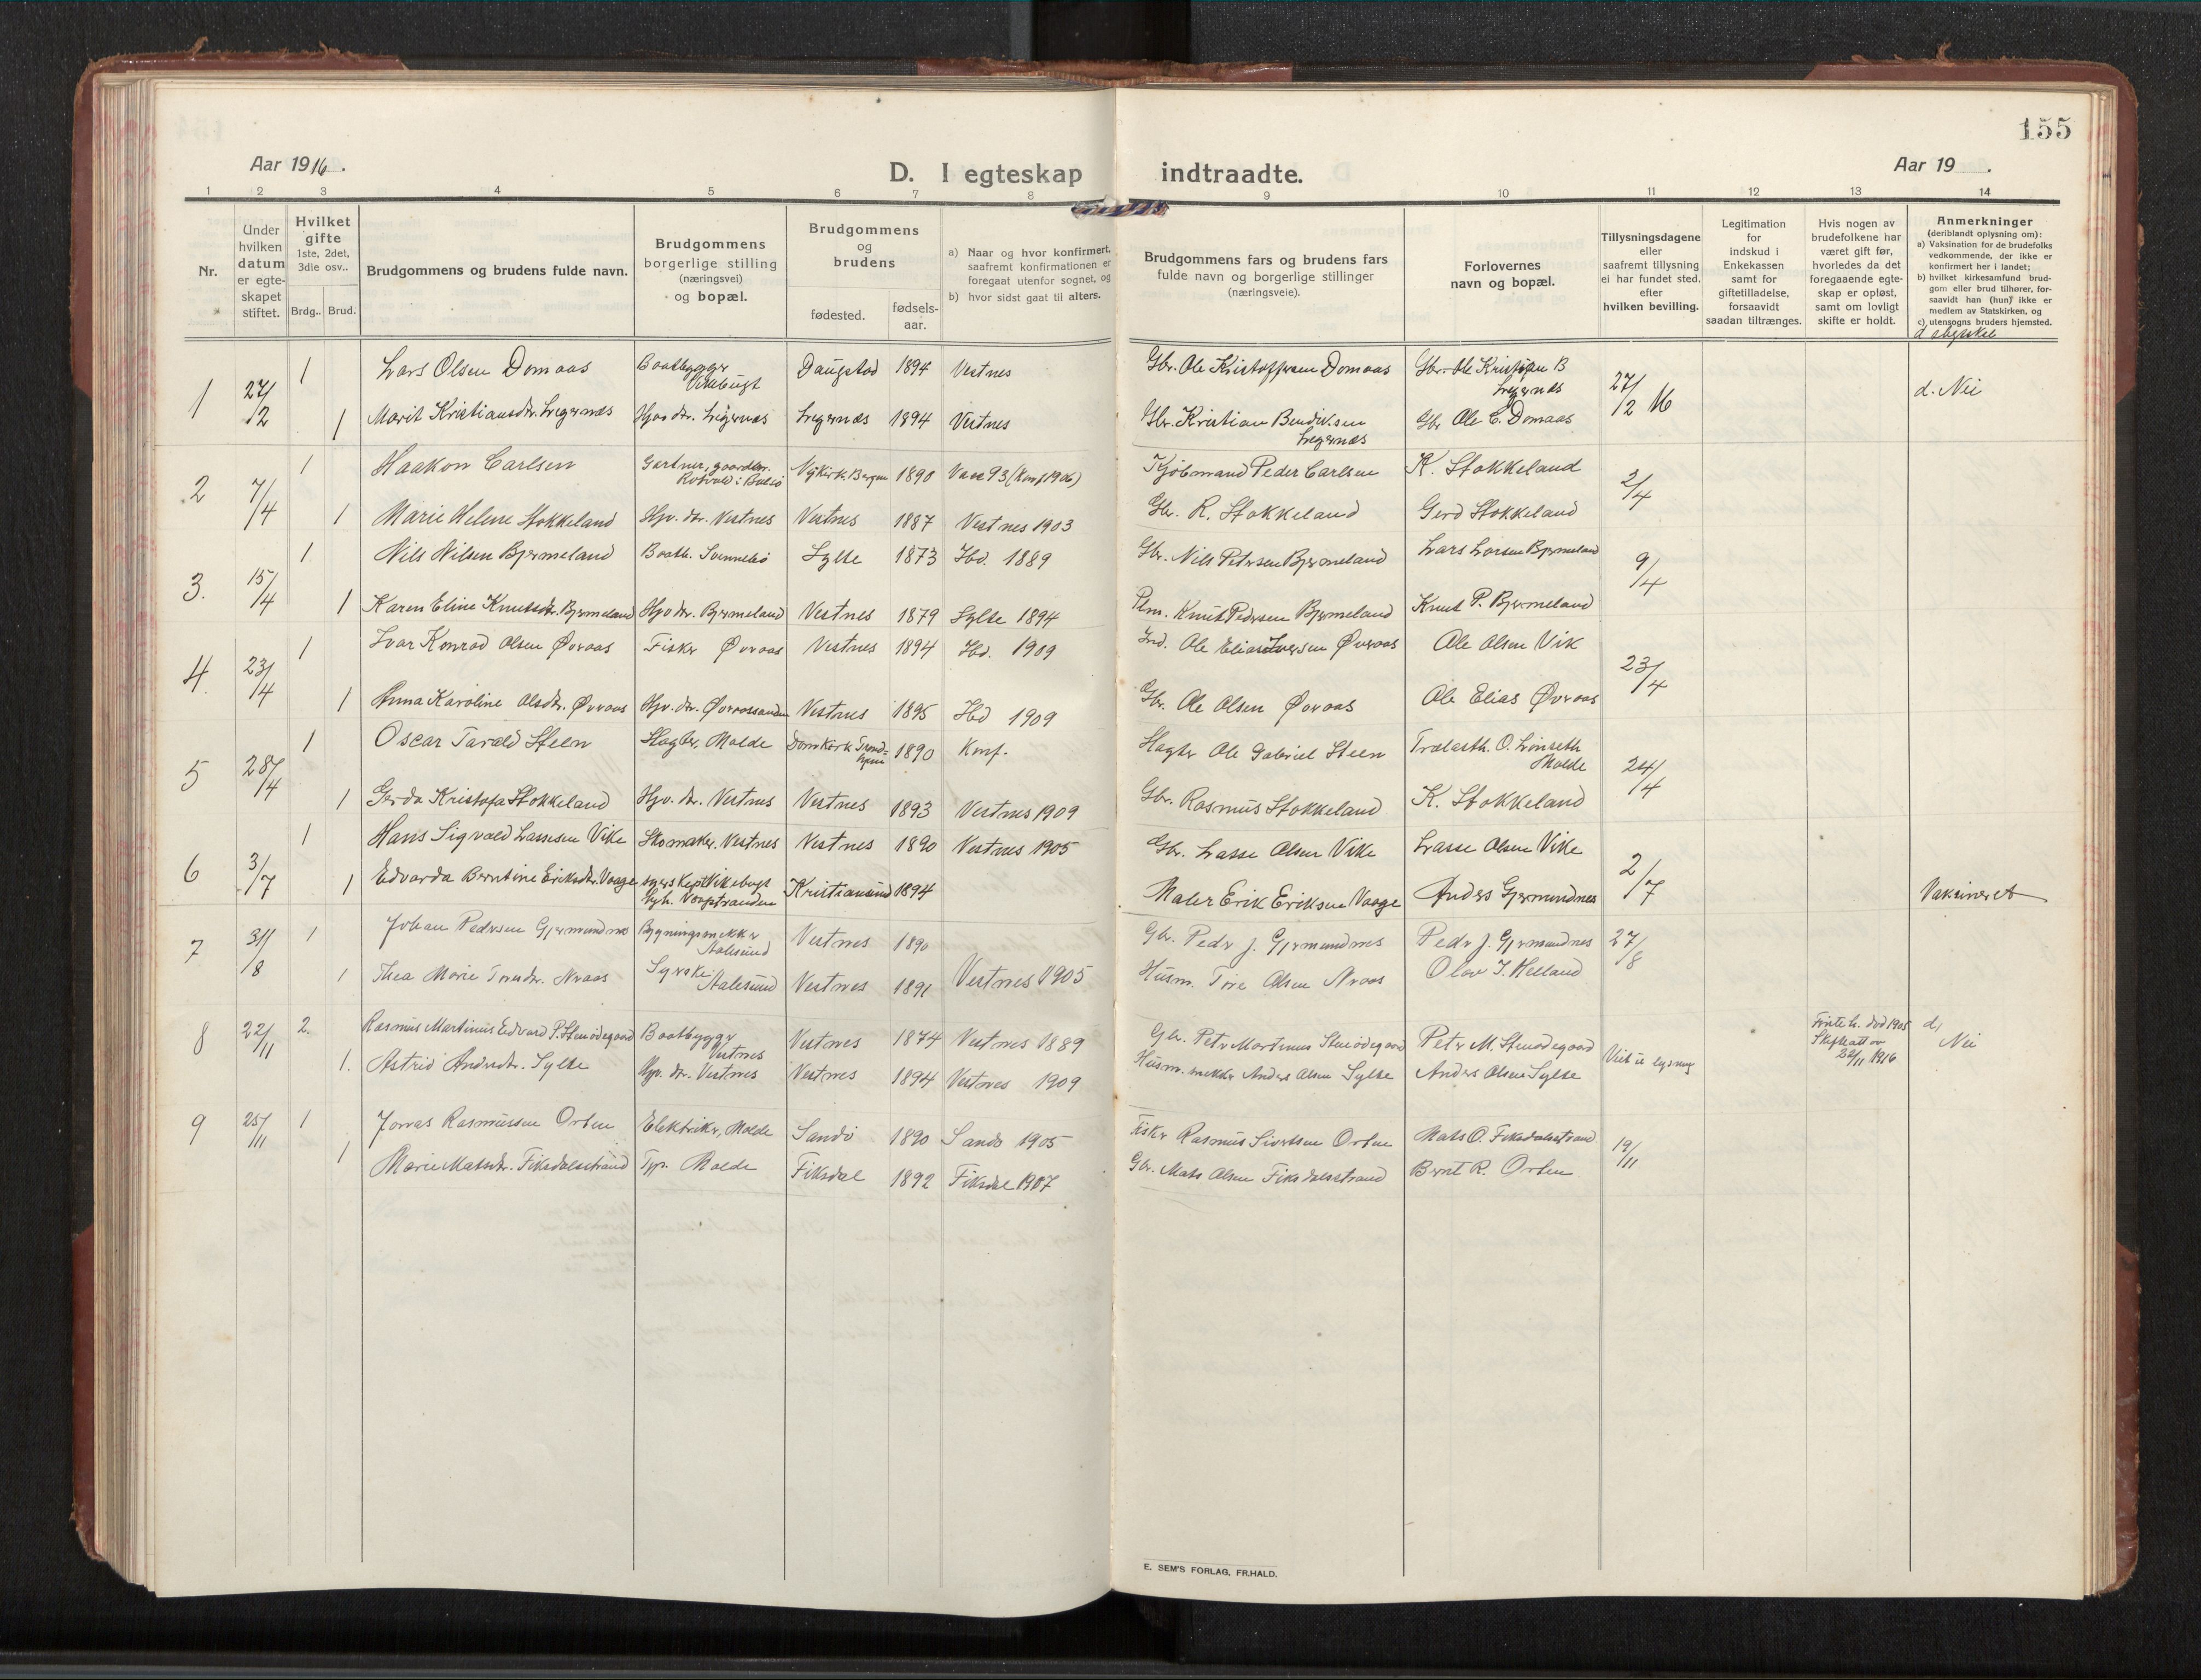 155
Aar 1916.
D. I egteskap indtraadte.
Aar 19 .
1 2 3 4 5 6 7 8 9 10 11 12 13 14
Nr.
Under hvilken datum er egte-skapet stiftet.
Hvilket gifte 1ste, 2det, 3die osv.. Brdg.. Brud.
Brudgommens og brudens fulde navn.
Brudgommens borgerlige stilling (næringsvei) og bopæl.
Brudgommens og brudens
fødested.
fødsels-aar.
a) Naar og hvor konfirmert, saafremt konfirmationen er foregaat utenfor sognet, og
b) hvor sidst gaat til alters.
Brudgommens fars og brudens fars fulde navn og borgerlige stillinger (næringsveie).
Forlovernes navn og bopæl.
Tillysningsdagene eller saafremt tillysning ei har fundet sted. efter hvilken bevilling.
Legitimation for indskud i Enkekassen samt for giftetilladelse, forsaavidt saadan tiltrænges.
Hvis nogen av brudefolkene har været gift før, hvorledes da det foregaaende egte-skap er opløst, samt om lovligt skifte er holdt.
Anmerkninger (deriblandt oplysning om):
a) Vaksination for de brudefolks vedkommende, der ikke er konfirmert her i landet;
b) hvilket kirkesamfund brud-gom eller brud tilhører, for-saavidt han (hun) ikke er medlem av Statskirken, og
c) utensogns bruders hjemsted.
1 27/2 1 Lars Olsen Domaas Baatbygger Daugstad 1894 Vestnes Gbr. Ole Kristoffersen Domaas 27/2 16 d. Nei
1 Marit Kristiansdtr. Legernæs Hjv. dtr. Legernæs Legernæs 1894 Vestnes Gbr. Kristian Bendiksen Legernæs Gbr Ole C. Domaas
2 7/4 1 Haakon Carlsen Gartner, Nykirk. Bergen 1890 (Konf 1906) Kjöbmand Peder Carlsen K. Stokkeland 2/4
1 Marie Helene Stokkeland Hjv. dtr. Vestnes Vestnes 1887 Vestnes 1903 Gbr. R. Stokkeland Gerd Stokkeland
3. 15/4 1 Nils Nilsen Bjermeland Baatb. Sylte 1873 Ibd. 1889 Gbr. Nils Petersen Bjermeland Lars Larsen Bjermeland 9/4
1 Karen Eline Knutsdtr. Bjermeland Hjv dtr. Bjermeland Vestnes 1879 Sylte 1894 Knut Pedersen Bjermeland Knut P. Bjermeland
4. 23/4 1 Ivar Konrad Olsen Øveraas Fisker Øveraas Vestnes 1894 Ibd. 1909 Ind. Ole Elias Iversen Øveraas Ole Olsen Vik 23/4
1 Anna Karoline Olsdtr. Øveraas Hjv. dtr. Øveraassanden Vestnes 1895 Ibd 1909 Gbr. Ole Olsen Øveraas Ole Elias Øveraas
5 28/4 1 Oscar Tarald Steen Slagter, Molde Domkirk Trond-hjem 1890 Konf. Slagter Ole Gabriel Steen Trælasth. O. Lönseth Molde 24/4
1 Gerda Kristofa Stokkeland Hjv. dtr. Vestnes Vestnes 1893 Vestnes 1909 Gbr. Rasmus Stokkeland K. Stokkeland
6 3/7 1 Hans Sigvald Lassesen Vike Skomaker. Vestnes Vestnes 1890 Vestnes 1905 Gbr. Lasse Olsen Vike Lasse Olsen Vike 2/7
1 Edvarda Berntine Eriksdtr. Vaage Kristiansund 1894 Maler Erik Eriksen Vaage Anders Gjermundnes Vaksineret
7 31/8 1 Johan Pedersen Gjermundnes Bygningssnekker Aalesund Vestnes 1890 Gbr. Peder J. Gjermundnes Peder J. Gjermundnes 27/8
1 Thea Marie Toresdtr. Neraas Syerske Aalesund Vestnes 1891 Vestnes 1905 Husm. Tore Olsen Neraas Olav T. Helland
8 22/11 2. Rasmus Martinus Edvard P. Stenødegaard Baatbygger Vestnes Vestnes 1874 Vestnes 1889 Gbr. Peter Martinus Stenødegaard Peter M. Stenødegaard 22/11 1916 d, Nei
1. Astrid Andersdtr. Sylte Hjv. dtr. Vestnes Vestnes 1894 Vestnes 1909 Husm. snekker Anders Olsen Sylte Anders Olsen Sylte
9 25/11 1 Jonas Rasmussen Orten Elektriker, Molde Sandö 1890 Sandö 1905 Fisker Rasmus Sivertsen Orten Mats O. Fiksdalsstrand 19/11
1 Marie Matsdtr. Fiksdalsstrand Tjp. Molde Fiksdal 1892 Fiksdal 1907 Gbr. Mats Olsen Fiksdalsstrand Bernt R. Orten
E. SEM'S FORLAG, FR.HALD.